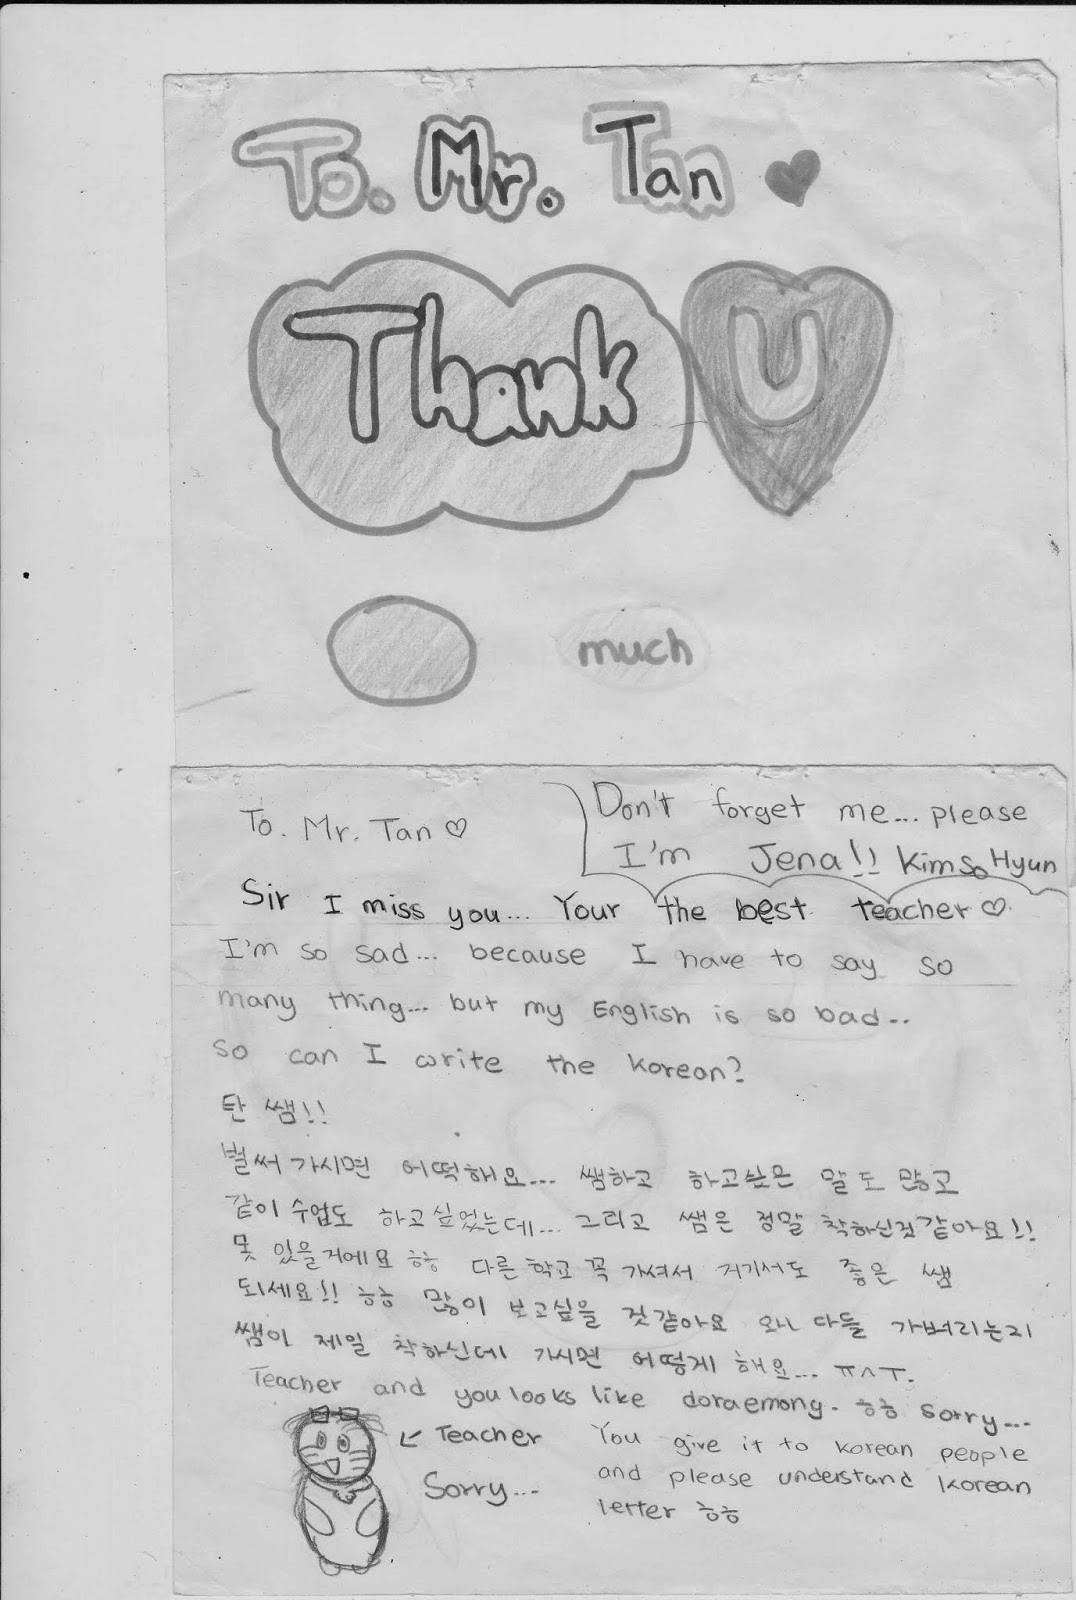 To. Mr. Tan ♥
Thank U
much
To. Mr. Tan ♡
Don't forget me... please
I'm Jena!! Kim So Hyun
Sir I miss you... Your the best teacher ♡.
I'm so sad... because I have to say so
many thing... but my English is so bad..
so can I write the Korean?
탄 쌤!!
벌써 가시면 어떡해요... 쌤하고 하고싶은 말도 많고
같이 수업도 하고싶었는데... 그리고 쌤은 정말 착하신것같아요!!
못 있을거에요 ㅎㅎ 다른학교 꼭 가셔서 거기서도 좋은 쌤
되세요!! ㅎㅎ 많이 보고싶을 것같아요 왜 다들 가버리는지
쌤이 제일 착하신데 가시면 어떻게 해요... ㅠㅅㅜ.
Teacher and you looks like doraemong. ㅎㅎ sorry...
← Teacher
Sorry...
You give it to korean people
and please understand korean
letter ㅎㅎ